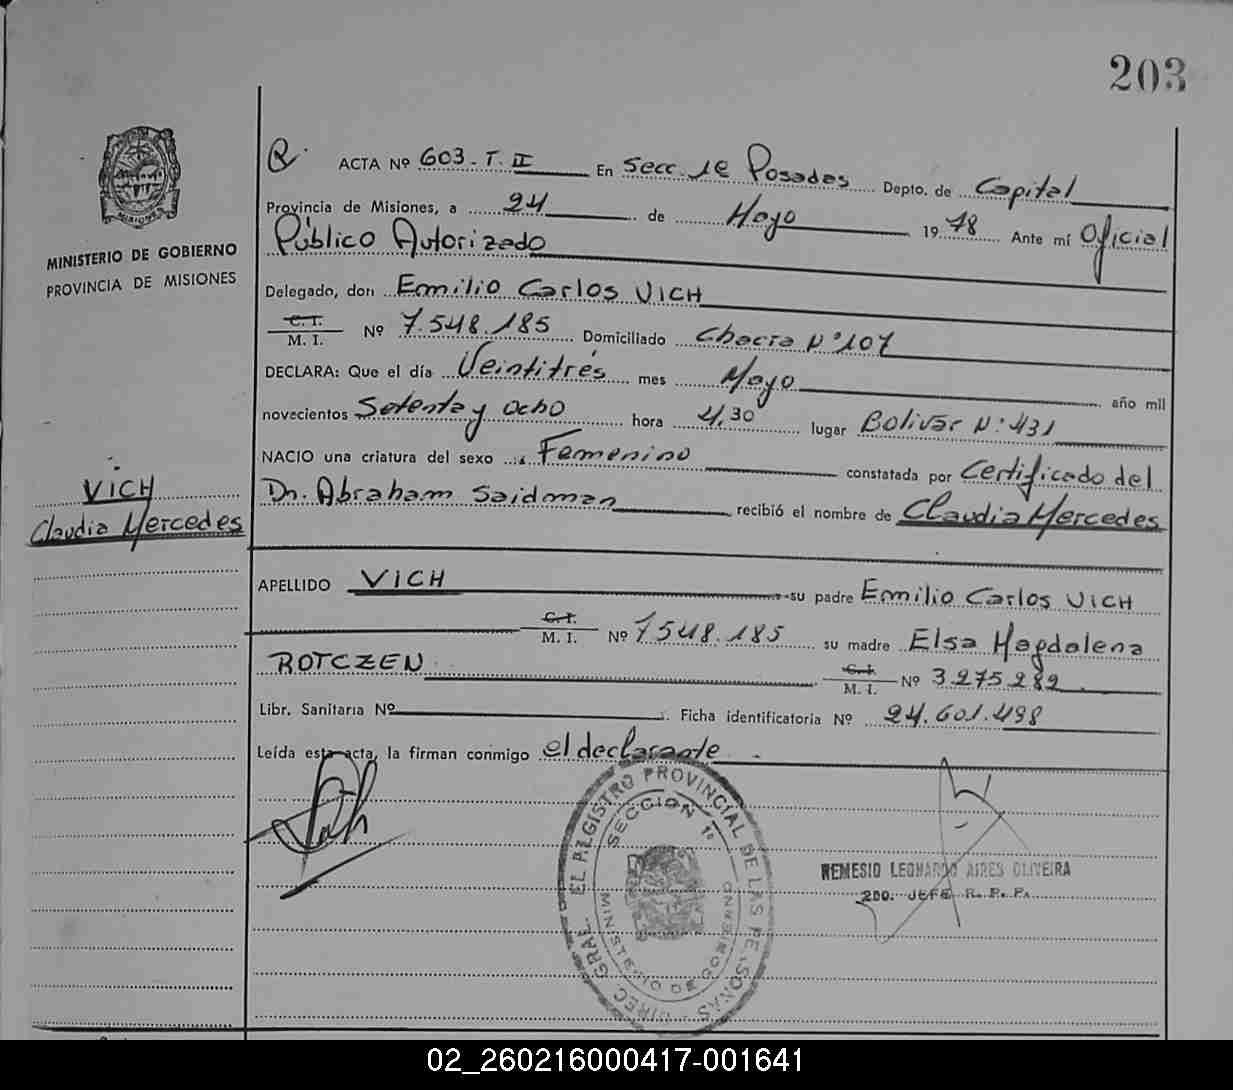 203
MISIONES
MINISTERIO DE GOBIERNO
PROVINCIA DE MISIONES
ACTA Nº 603-T. II En Secc. 1e Posadas Depto. de Capital
Provincia de Misiones, a 24 de Mayo 1978 Ante mí Oficial
Público Autorizado
Delegado, don Emilio Carlos VICH
C. I.
M. I. Nº 7.548.185 Domiciliado Chacra Nº 107
DECLARA: Que el día Veintitrés mes Mayo año mil
novecientos Setenta y ocho hora 4,30 lugar Bolivar Nº 431
NACIO una criatura del sexo Femenino constatada por Certificado del
Dn. Abraham Saidman recibió el nombre de Claudia Mercedes
VICH
Claudia Mercedes
APELLIDO VICH su padre Emilio Carlos VICH
C. I.
M. I. Nº 7548.185 su madre Elsa Magdalena
ROTCZEN C. I.
M. I. Nº 3.275.282
Libr. Sanitaria Nº Ficha identificatoria Nº 24.601.498
Leída esta acta, la firman conmigo el declarante
DIREC. GRAL. EL REGISTRO PROVINCIAL DE LAS PERSONAS
SECCION 1º
MINISTERIO DE GOBIERNO
REMESIO LEONARDO AIRES OLIVEIRA
2DO. JEFE R. P. P.
02_260216000417-001641